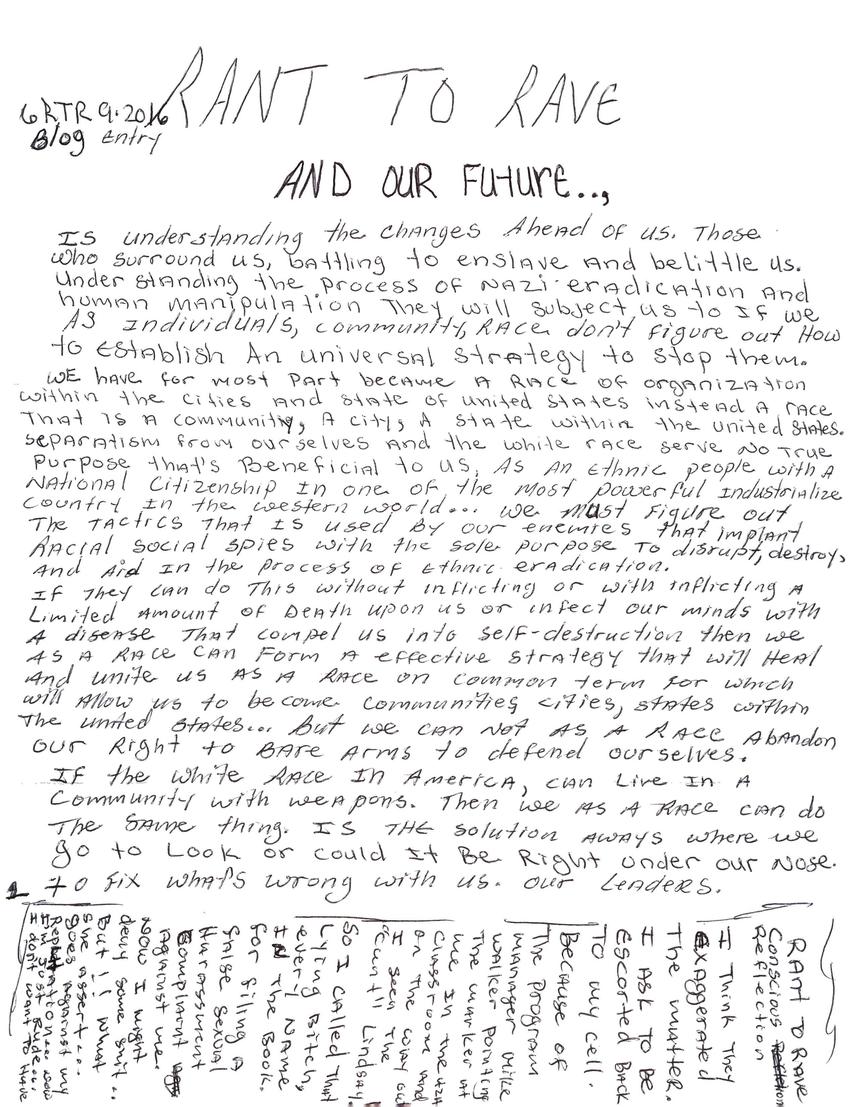 RANT TO RAVE
6 RTR 9.2016
Blog Entry
AND OUR FUTURE..,
IS understanding the changes Ahead of us. Those
who surround us, battling to enslave and belittle us.
Understanding the process of NAZi eradication and
human manipulation They will subject us to If we
AS Individuals, community, RACE don't figure out How
to Establish An universal strategy to stop them.
WE have for most part became A RACE of organization
within the cities and state of united states instead A race
That is A community, A city, A state within the united states.
separatism from ourselves and the white race serve no true
purpose that's Beneficial to us, As An Ethnic people with A
National Citizenship In one of the most powerful Industrialize
Country In the western world... we must figure out
The TACTICS That IS used By our enemies that implant
Racial social spies with the sole purpose To disrupt, destroy,
And Aid In the process of Ethnic eradication.
If They can do This without inflicting or with inflicting A
Limited Amount of Death upon us or infect our minds with
A disease That compel us into self-destruction then we
AS A RACE CAN Form A effective strategy that will Heal
And unite us AS A RACE on common term for which
will Allow us to become communities cities, states within
The united states... But we can not As A Race Abandon
our Right to BARE Arms to defend ourselves.
If the white RACE In America, can Live In A
Community with weapons. Then we AS A RACE can do
The same thing. IS THE solution Aways where we
go to Look or could It Be Right under our Nose.
To fix what's wrong with us. our Leaders.
1
RANT TO RAVE
Conscious
Reflection
I Think They
Exaggerated
The matter.
I ASK TO BE
Escorted BACK
To my cell.
Because of
The program
manager mike
walker pointing
The marker at
me In the
classroom and
on the way out
I seen The
"Cunt" Lindsay.
So I called That
Lying Bitch,
every NAME
IN The Book.
for filing A
false sexual
Harassment
Complaint
Against me.
Now I might
deny some shit..
But !! what
she assert...
goes against my
Reputation... now
I'm Just Rude...
I don't want To have